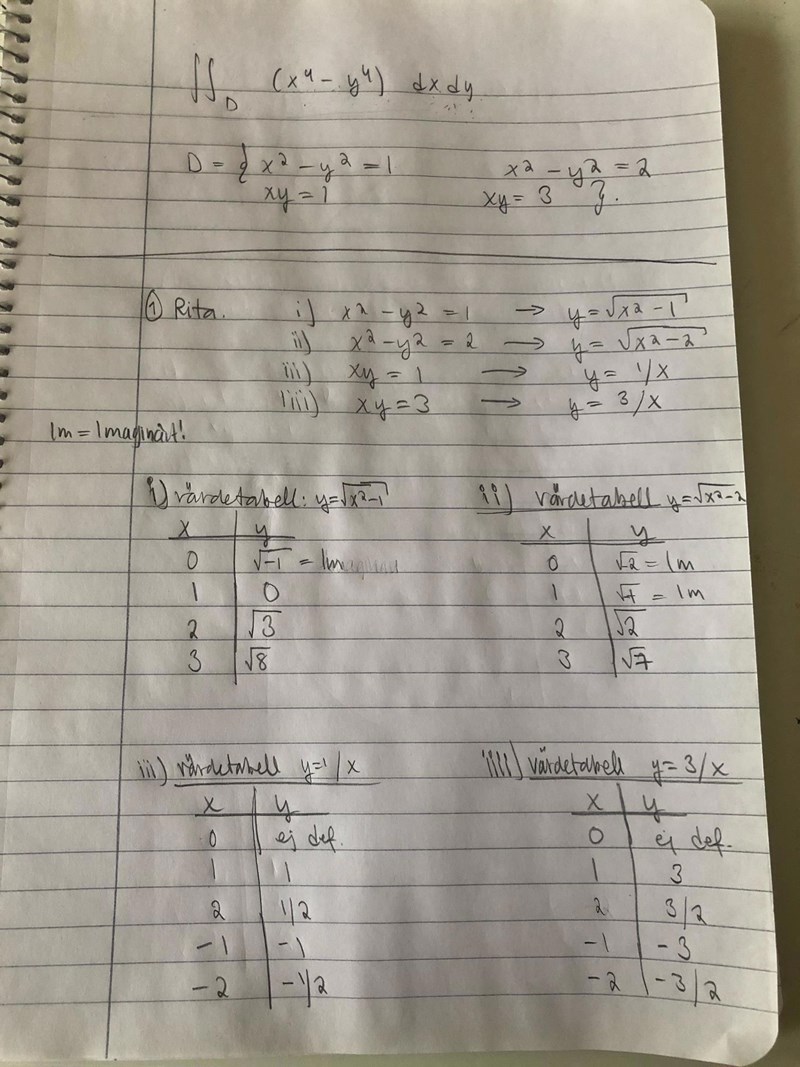 ∬_D (x⁴ - y⁴) dx dy
D = { x² - y² = 1 x² - y² = 2
xy = 1 xy = 3 }.
① Rita. i) x² - y² = 1 → y = √(x² - 1)
ii) x² - y² = 2 → y = √(x² - 2)
iii) xy = 1 → y = 1/x
iiii) xy = 3 → y = 3/x
Im = Imaginärt!
i) värdetabell: y=√(x²-1)
x y
0 √-1 = Im
1 0
2 √3
3 √8
ii) värdetabell y=√(x²-2)
x y
0 √-2 = Im
1 √-1 = Im
2 √2
3 √7
iii) värdetabell y=1/x
x y
0 ej def.
1 1
2 1/2
-1 -1
-2 -1/2
iiii) värdetabell y = 3/x
x y
0 ej def.
1 3
2 3/2
-1 -3
-2 -3/2